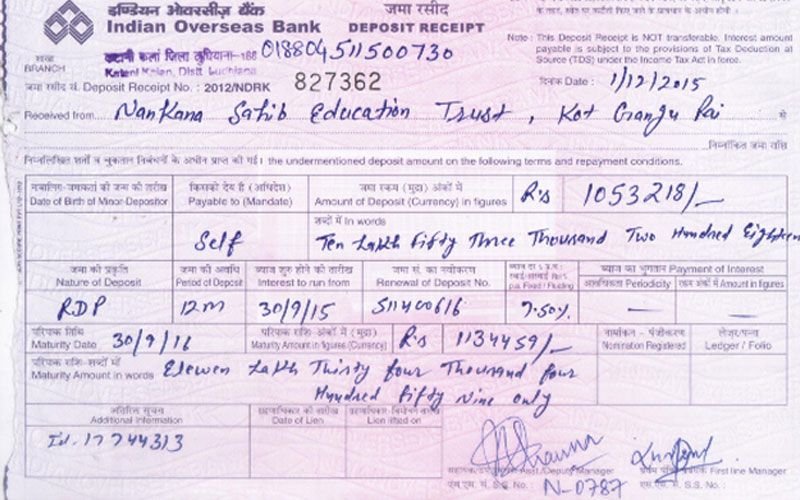 इण्डियन ओवरसीज़ बैंक जमा रसीद
Indian Overseas Bank DEPOSIT RECEIPT
Note : This Deposit Receipt is NOT transferable. Interest amount
payable is subject to the provisions of Tax Deduction at
Source (TDS) under the Income Tax Act in force.
शाखा कटानी कलां ज़िला लुधियाना-188 018804511500730
BRANCH Katani Kalan, Distt. Ludhiana
जमा रसीद सं. Deposit Receipt No. : 2012/NDRK 827362 दिनांक Date : 1/12/2015
Received from Nankana Sahib Education Trust, Kot Gangu Rai से
निम्नांकित जमा राशि
निम्नलिखित शर्तों व चुकतान निबंधनों के अधीन प्राप्त की गई। the undermentioned deposit amount on the following terms and repayment conditions.
नाबालिग-जमाकर्ता की जन्म की तारीख किसको देय है (अधिदेश) जमा रकम (मुद्रा) अंकों में
Date of Birth of Minor-Depositor Payable to (Mandate) Amount of Deposit (Currency) in figures R's 1053218/-
शब्दों में In words
Self Ten Lakh Fifty Three Thousand Two Hundred Eighteen
जमा की प्रकृति जमा की अवधि ब्याज शुरु होने की तारीख जमा सं. का नवीकरण ब्याज का भुगतान Payment of Interest
Nature of Deposit Period of Deposit Interest to run from Renewal of Deposit No. p.a. Fixed / Floating आवधिकता Periodicity रकम अंकों में Amount in figures
RDP 12M 30/9/15 511400616 7.50% — —
परिपक्व तिथि परिपक्व राशि अंकों में (मुद्रा) नामांकन - पंजीकरण लेज़र/पन्ना
Maturity Date 30/9/16 Maturity Amount in figures (Currency) R's 1134459/- Nomination Registered Ledger / Folio
परिपक्व राशि शब्दों में
Maturity Amount in words Elewen Lakh Thirty four Thousand four
Hundred fifty Nine only
अतिरिक्त सूचना ग्रहणाधिकार की तारीख
Additional Information Date of Lien Lien lifted on
Id. 17744313
Asst./Deputy Manager First line Manager
एस.एस. सं. S.S. No. : N-0787 एस.एस. सं. S.S. No. :